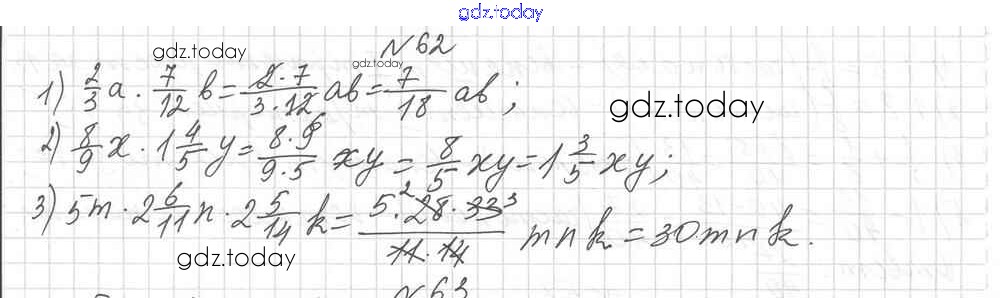 gdz.today
№62
gdz.today gdz.today
1) 2/3 a · 7/12 b = 2·7/3·12 ab = 7/18 ab;
gdz.today
2) 8/9 x · 1 4/5 y = 8·9/9·5 xy = 8/5 xy = 1 3/5 xy;
3) 5m · 2 6/11 n · 2 5/14 k = 5·28² · 33³/11·14 mnk = 30mnk.
gdz.today
№63